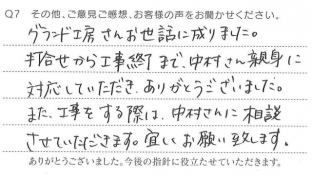 Q7 その他、ご意見ご感想、お客様の声をお聞かせください。
グランド工房さんお世話に成りました。
打合せから工事終了まで、中村さん親身に
対応していただき、ありがとうございました。
また、工事をする際は、中村さんに相談
させていただきます。宜しくお願い致します。
ありがとうございました。今後の指針に役立たせていただきます。